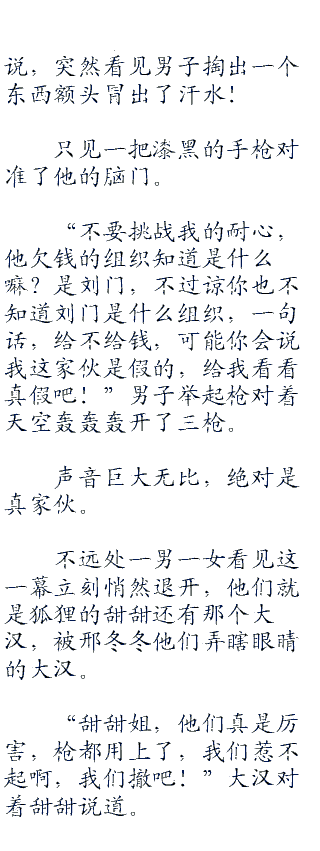 说，突然看见男子掏出一个
东西额头冒出了汗水！
只见一把漆黑的手枪对
准了他的脑门。
“不要挑战我的耐心，
他欠钱的组织知道是什么
嘛？是刘门，不过谅你也不
知道刘门是什么组织，一句
话，给不给钱，可能你会说
我这家伙是假的，给我看看
真假吧！”男子举起枪对着
天空轰轰轰开了三枪。
声音巨大无比，绝对是
真家伙。
不远处一男一女看见这
一幕立刻悄然退开，他们就
是狐狸的甜甜还有那个大
汉，被邢冬冬他们弄瞎眼睛
的大汉。
“甜甜姐，他们真是厉
害，枪都用上了，我们惹不
起啊，我们撤吧！”大汉对
着甜甜说道。